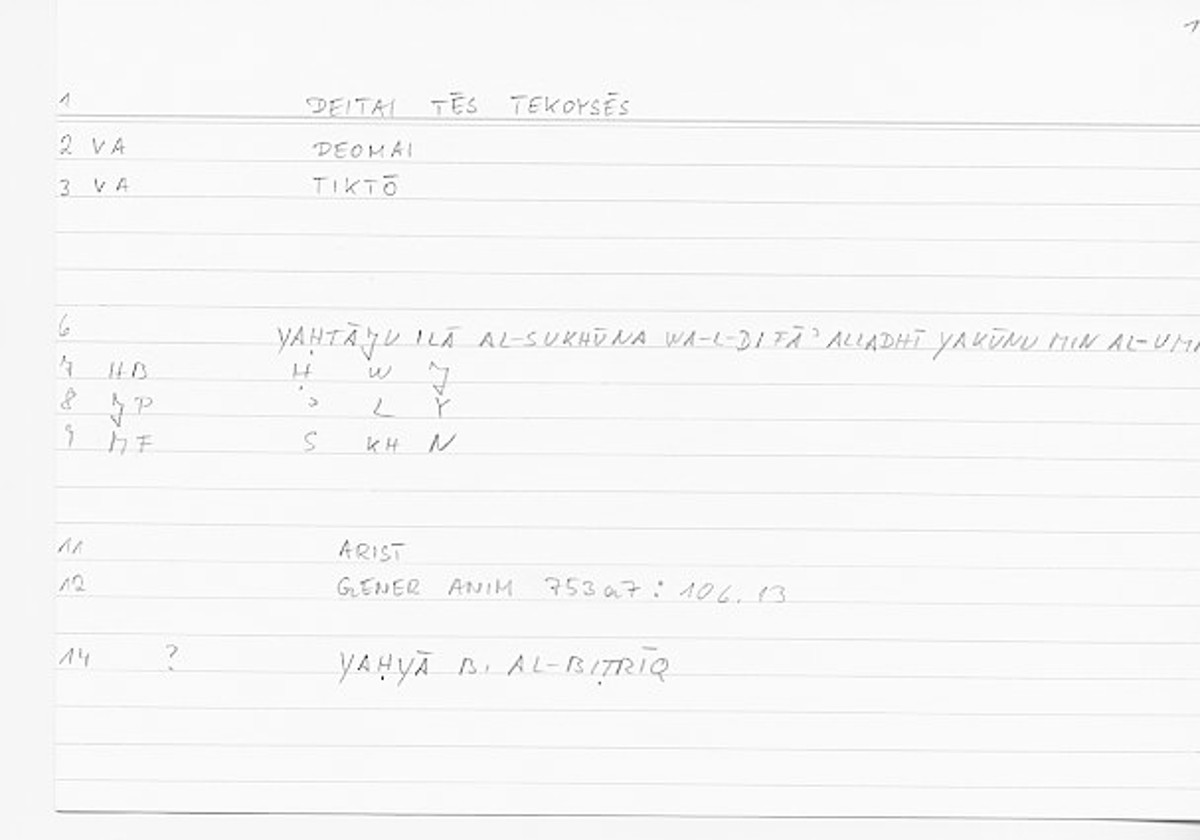 1
1 DEITAI TĒS TEKOYSĒS
2 VA DEOMAI
3 VA TIKTŌ
6 YAḤTĀJU ILĀ AL-SUKHŪNA WA-L-DIFĀʾ ALLADHĪ YAKŪNU MIN AL-UMM
7 HB Ḥ W J
8 JP ʾ L Y
9 MF S KH N
11 ARIST
12 GENER ANIM 753a7 : 106.13
14 ? YAḤYĀ B. AL-BIṬRĪQ